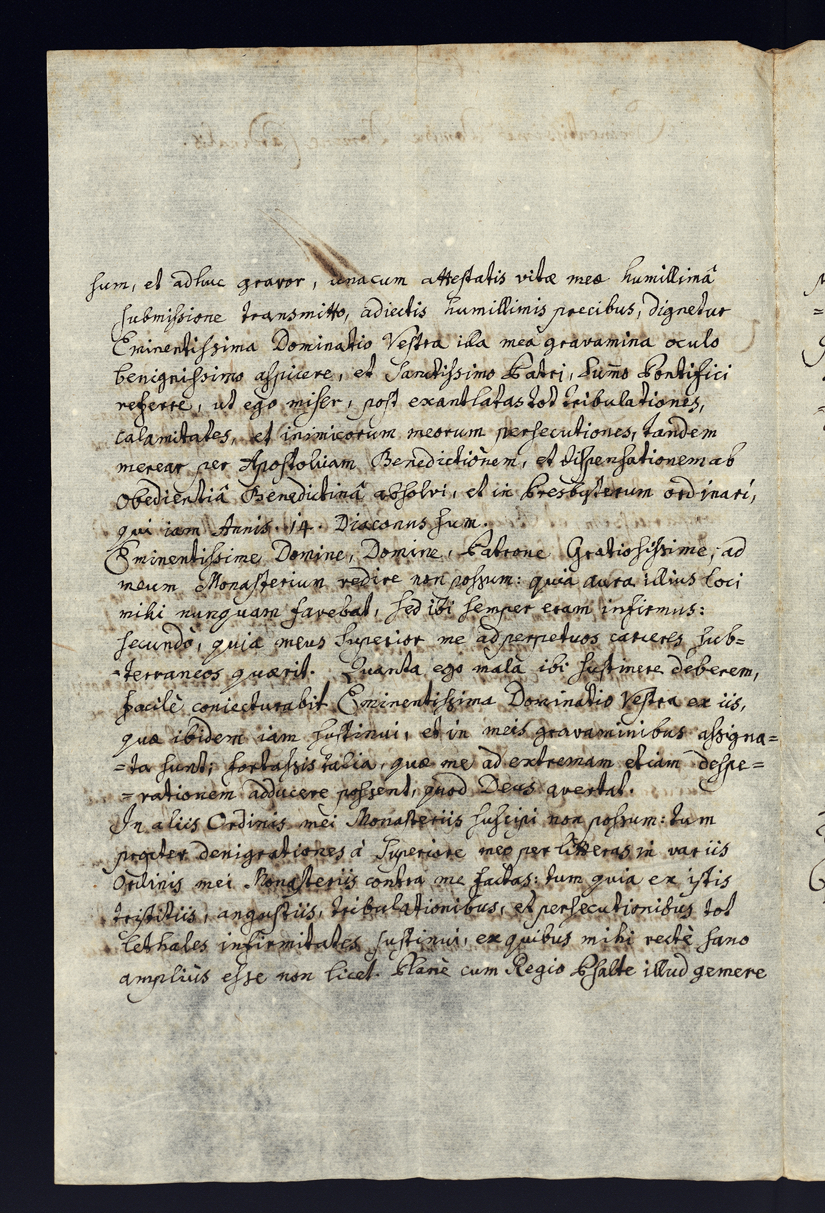 sum, et adhuc gravor, unacum attestatis vitæ meæ humillimâ
submissione transmitto, adiectis humillimis precibus, dignetur
Eminentissima Dominatio Vestra illa mea gravamina oculo
benignissimo aspicere, et Sanctissimo Patri, Sum̃o Pontifici
referre, ut ego miser, post exantlatas tot tribulationes,
calamitates, et inimicorum meorum persecutiones, tandem
merear per Apostolicam Benedictionem, et dispensationem ab
Obedientiâ Benedictinâ absolvi, et in Presbyterum ordinari,
qui iam Annis 14. Diaconus sum.
Eminentissime Domine, Domine, Patrone Gratiosissime, ad
meum Monasterium redire non possum: quia aura illius loci
mihi nunquam favebat, sed ibi semper eram infirmus:
secundò, quia meus Superior me ad perpetuos carceres sub=
=terraneos quærit. Quanta ego mala ibi sustinere deberem,
facilè coniecturabit Eminentissima Dominatio Vestra ex iis,
quæ ibidem iam sustinui, et in meis gravaminibus assigna=
=ta sunt; fortassis talia, quæ me ad extremam etiam despe=
=rationem adducere possent, quod Deus avertat.
In aliis Ordinis mei Monasteriis suscipi non possum: tum
propter denigrationes à Superiore meo per litteras in variis
Ordinis mei Monasteriis contra me factas: tum quia ex istis
tristitiis, angustiis, tribulationibus, et persecutionibus tot
lethales infirmitates sustinui, ex quibus mihi rectè sano
ampliùs esse non licet. Planè cum Regio Psalte illud gemere